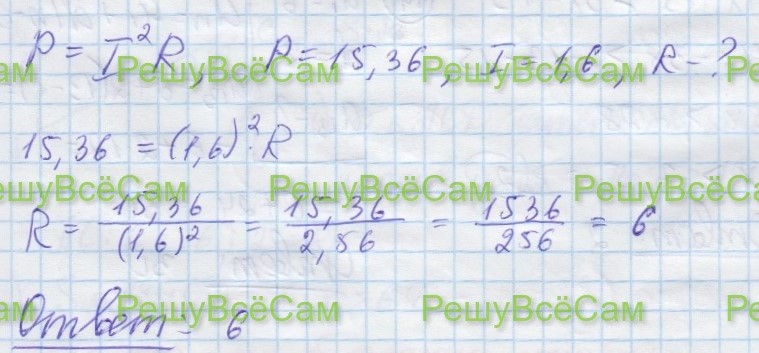 P = I²R, P = 15,36, I = 1,6, R - ?
РешуВсёСам РешуВсёСам
15,36 = (1,6)²·R
РешуВсёСам РешуВсёСам РешуВсёСам
R = 15,36/(1,6)² = 15,36/2,56 = 1536/256 = 6
Ответ: 6
РешуВсёСам РешуВсёСам